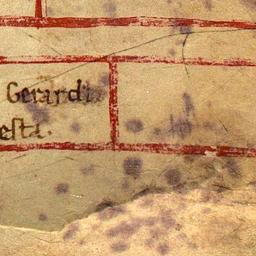 Gerardi
esta.